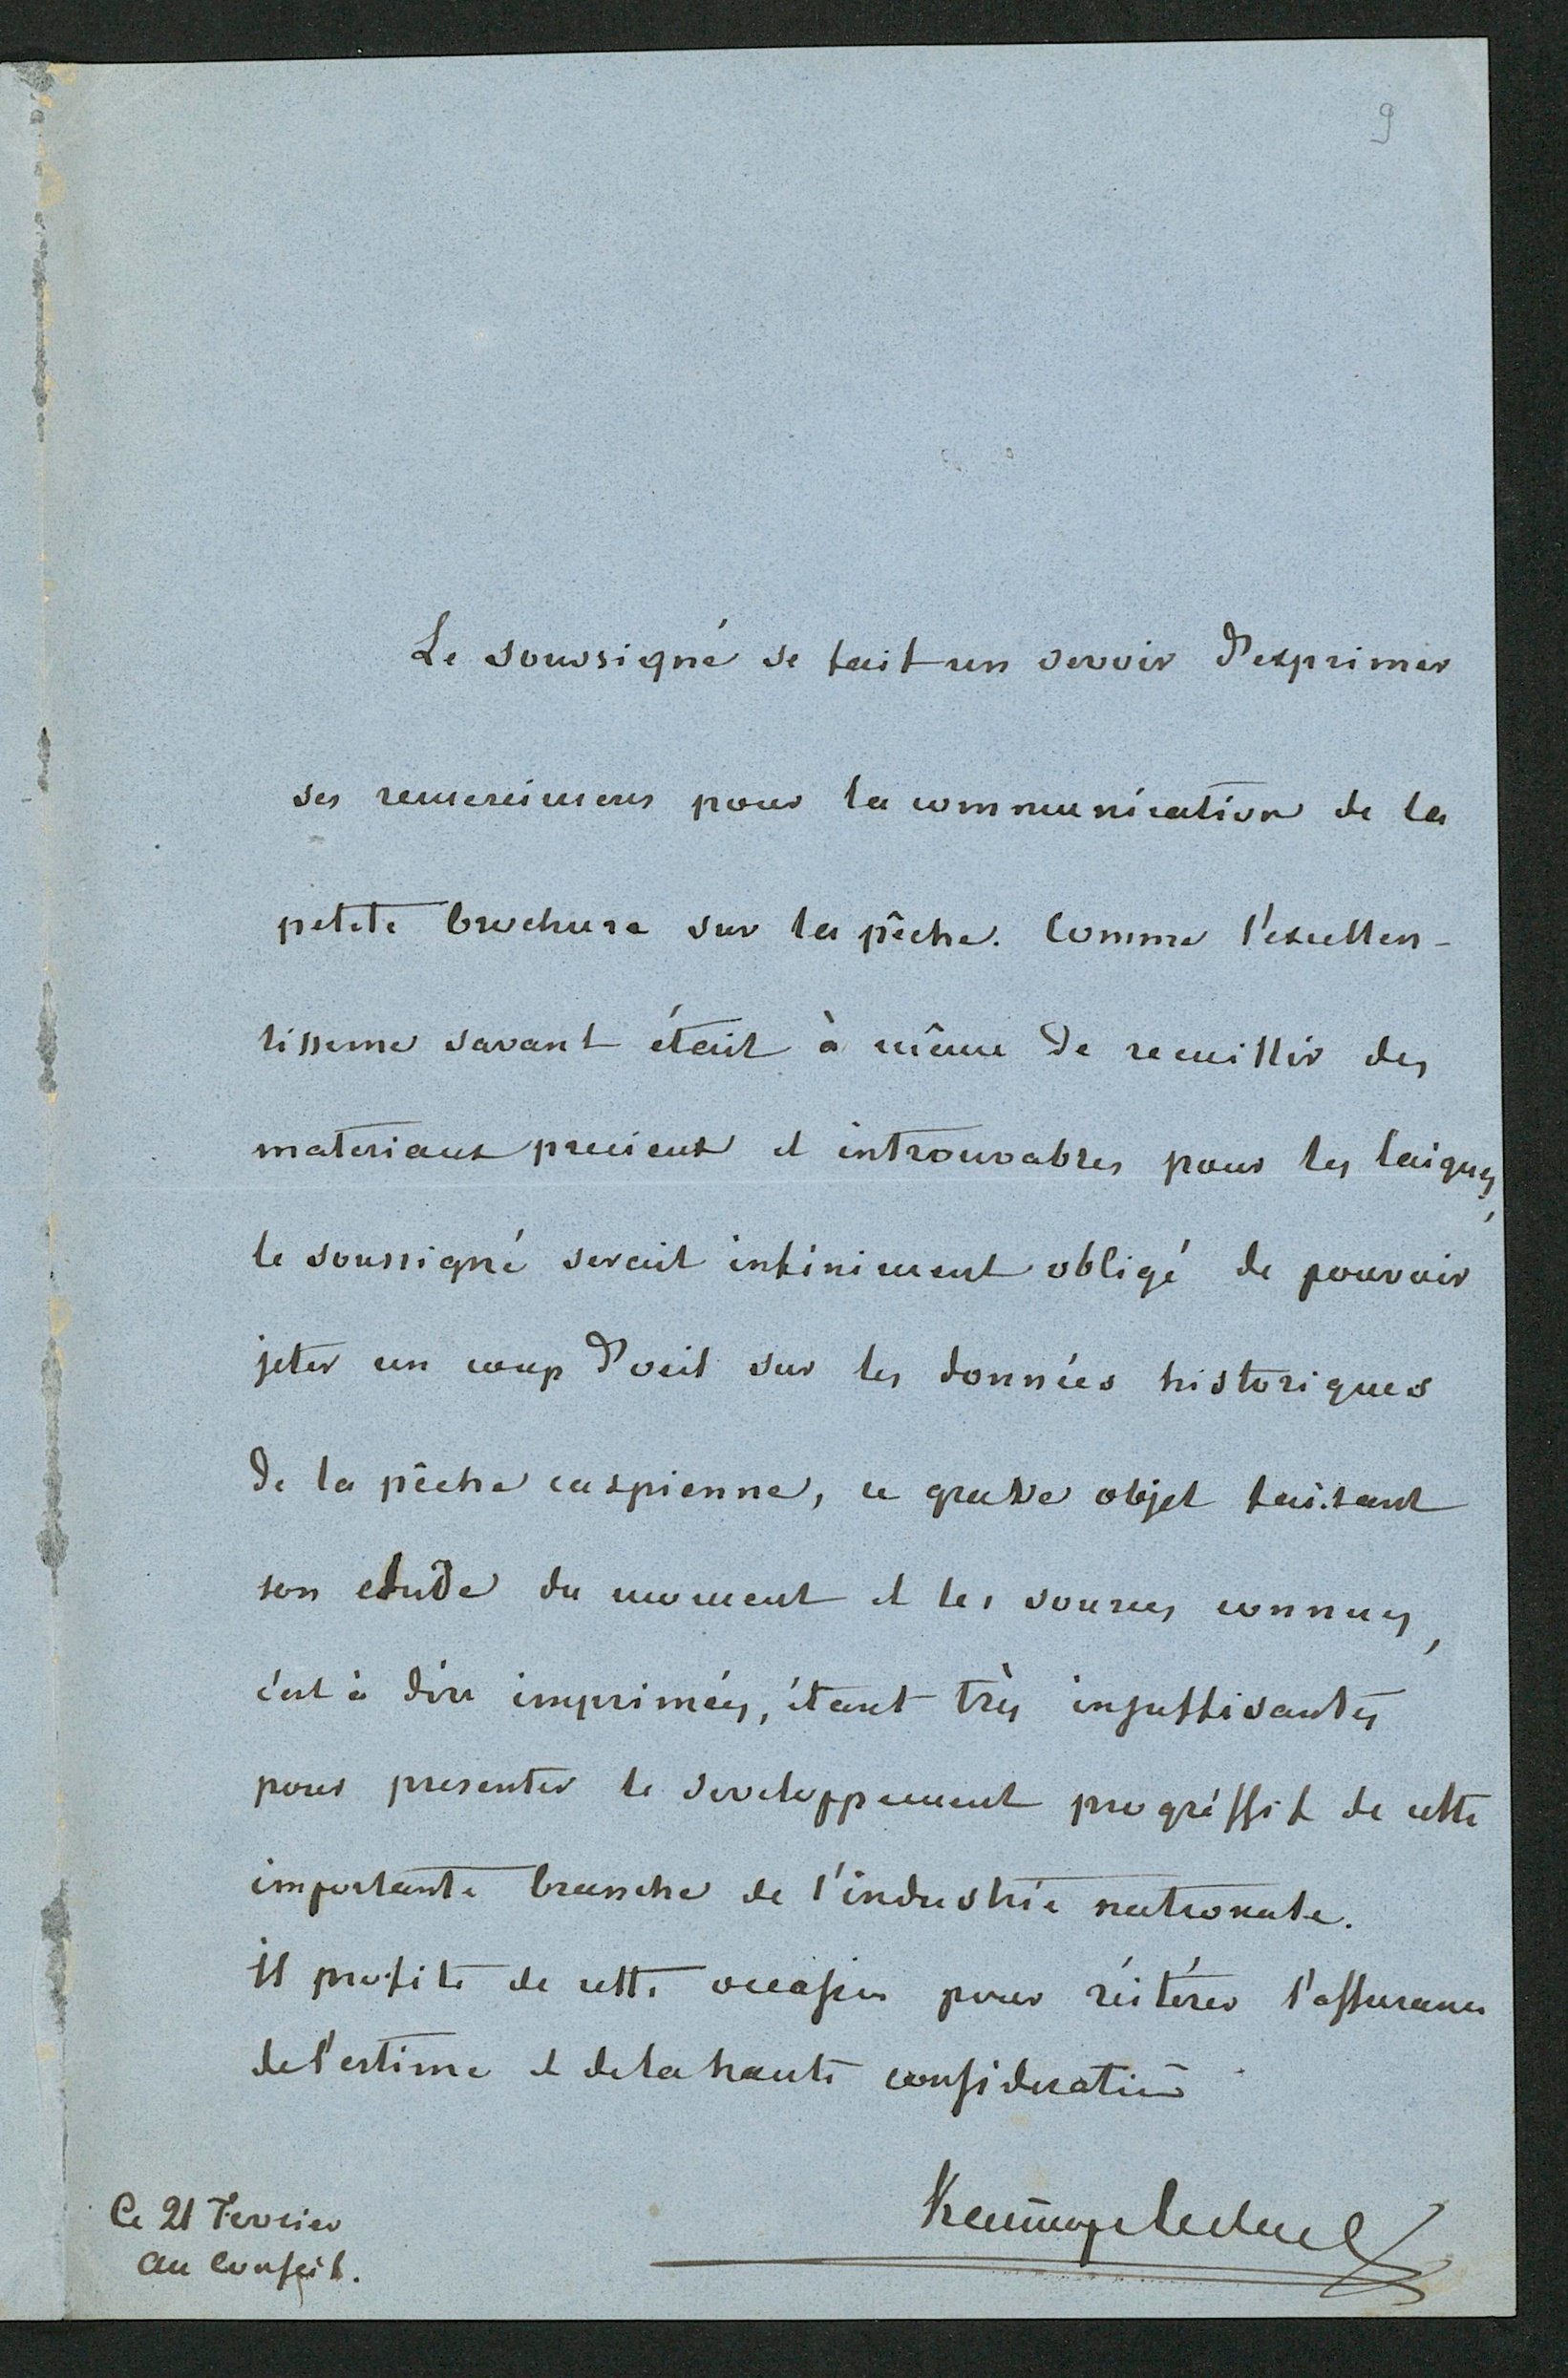 9
Le soussigné se fait un devoir d'exprimer
ses remercimens pour la communication de la
petite brochure sur la pêche. Comme l'excellen-
tissime savant était à même de recuillir des
materiaux precieux et introuvables pour les laiques,
le soussigné serait infiniment obligé de pouvoir
jeter un coup d'oeil sur les données historiques
de la pêche caspienne, ce grave objet faisant
son etude du moment et les sources connues,
c'est à dire imprimées, étant très insuffisantes
pour presenter le developpement progréssif de cette
importante branche de l'industrie nationale.
Il profite de cette occasion pour réitérer l'assurance
de l'estime et de la haute consideration
Ce 21 Fevrier
au Conseil.